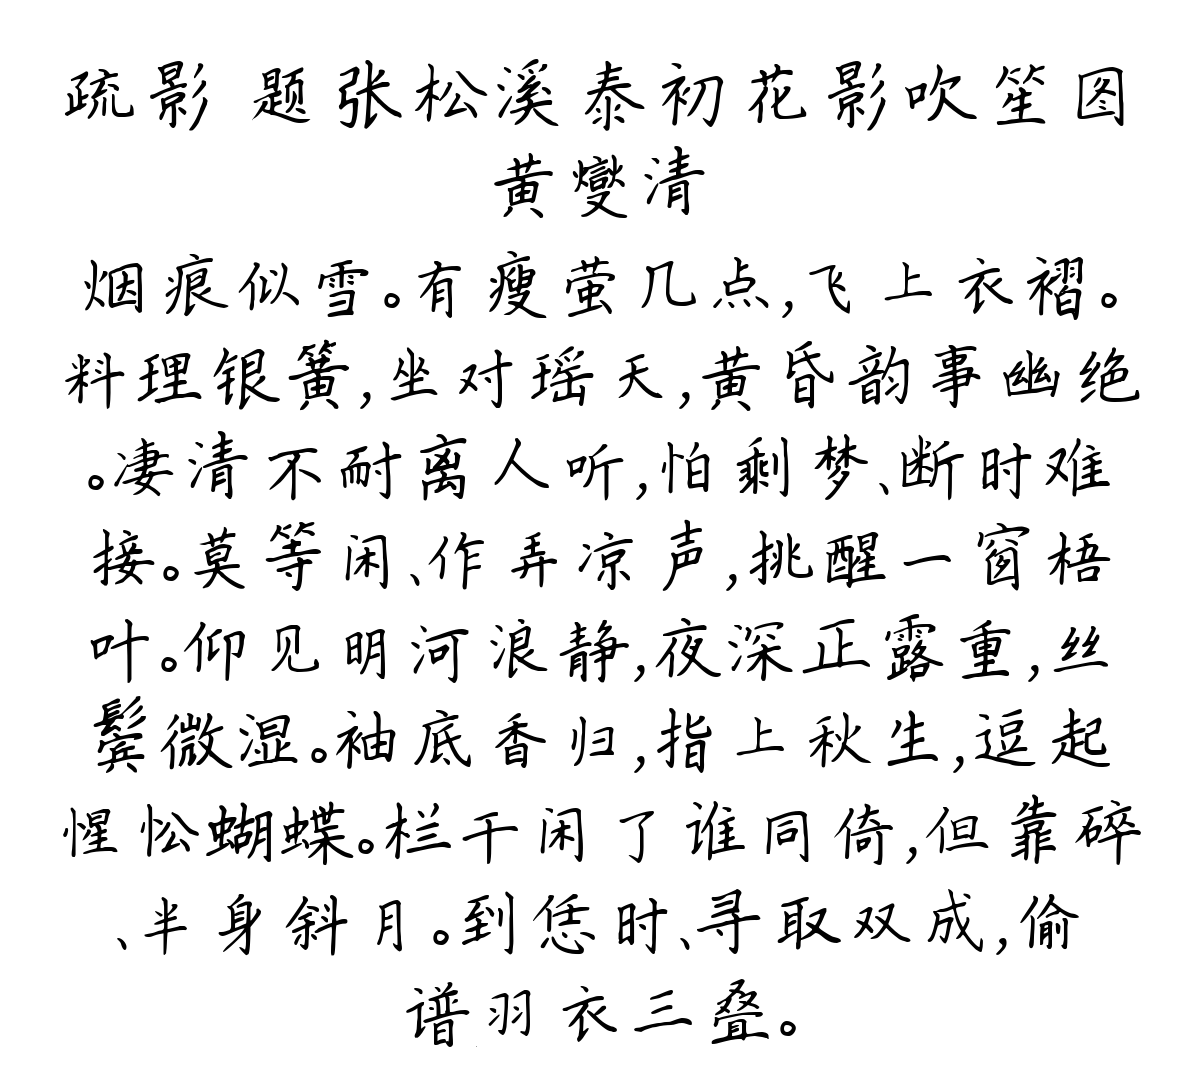 疏影 题张松溪泰初花影吹笙图
黄燮清
烟痕似雪。有瘦萤几点,飞上衣褶。
料理银簧,坐对瑶天,黄昏韵事幽绝
。凄清不耐离人听,怕剩梦、断时难
接。莫等闲、作弄凉声,挑醒一窗梧
叶。仰见明河浪静,夜深正露重,丝
鬓微湿。袖底香归,指上秋生,逗起
惺忪蝴蝶。栏干闲了谁同倚,但靠碎
、半身斜月。到恁时、寻取双成,偷
谱羽衣三叠。